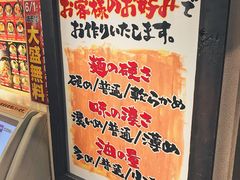 お客様のお好みで
お作りいたします。
麺の硬さ
硬め/普通/軟らかめ
味の濃さ
濃いめ/普通/薄め
油の量
多め/普通/
大盛無料